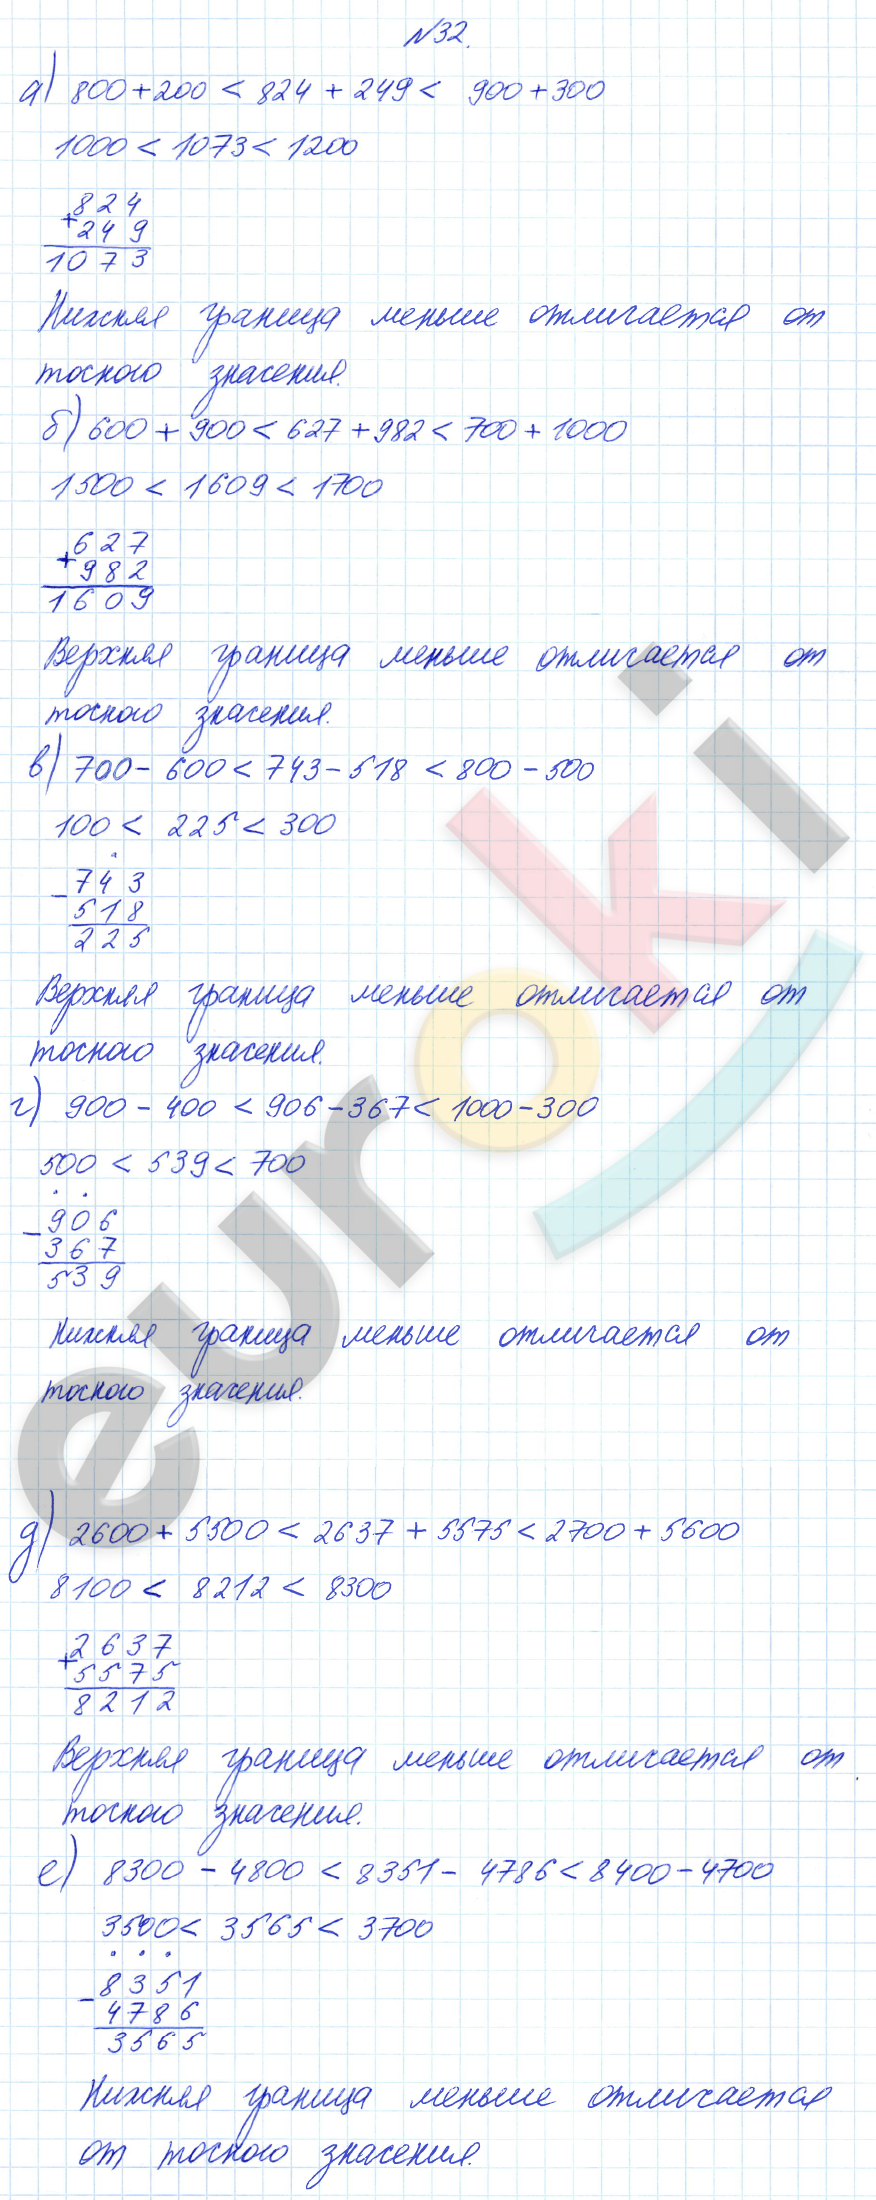 №32.
а) 800+200 < 824 + 249 < 900+300
1000 < 1073 < 1200
824
+ 249
1073
Нижняя граница меньше отличается от
точного значения.
б) 600 + 900 < 627 + 982 < 700 + 1000
1500 < 1609 < 1700
627
+ 982
1609
Верхняя граница меньше отличается от
точного значения.
в) 700 - 600 < 743 - 518 < 800 - 500
100 < 225 < 300
743
- 518
225
Верхняя граница меньше отличается от
точного значения.
г) 900 - 400 < 906 - 367 < 1000 - 300
500 < 539 < 700
906
- 367
539
Нижняя граница меньше отличается от
точного значения.
д) 2600 + 5500 < 2637 + 5575 < 2700 + 5600
8100 < 8212 < 8300
2637
+ 5575
8212
Верхняя граница меньше отличается от
точного значения.
е) 8300 - 4800 < 8351 - 4786 < 8400 - 4700
3500 < 3565 < 3700
8351
- 4786
3565
Нижняя граница меньше отличается
от точного значения.
euroki